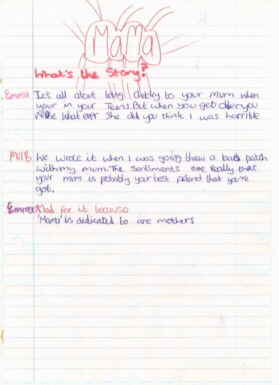 MaMa
What's the Story?
Emma It's all about being to your mum when
your in your Teens. But when you get older you
what ever she did you think I was horrible
Mel B We wrote it when I was going threw a bad patch
with my mum. The sentiments are really that
your mum is probibly your best friend that you've
got.
Emma Mad for it because
'Mama' is dedicated to are mothers